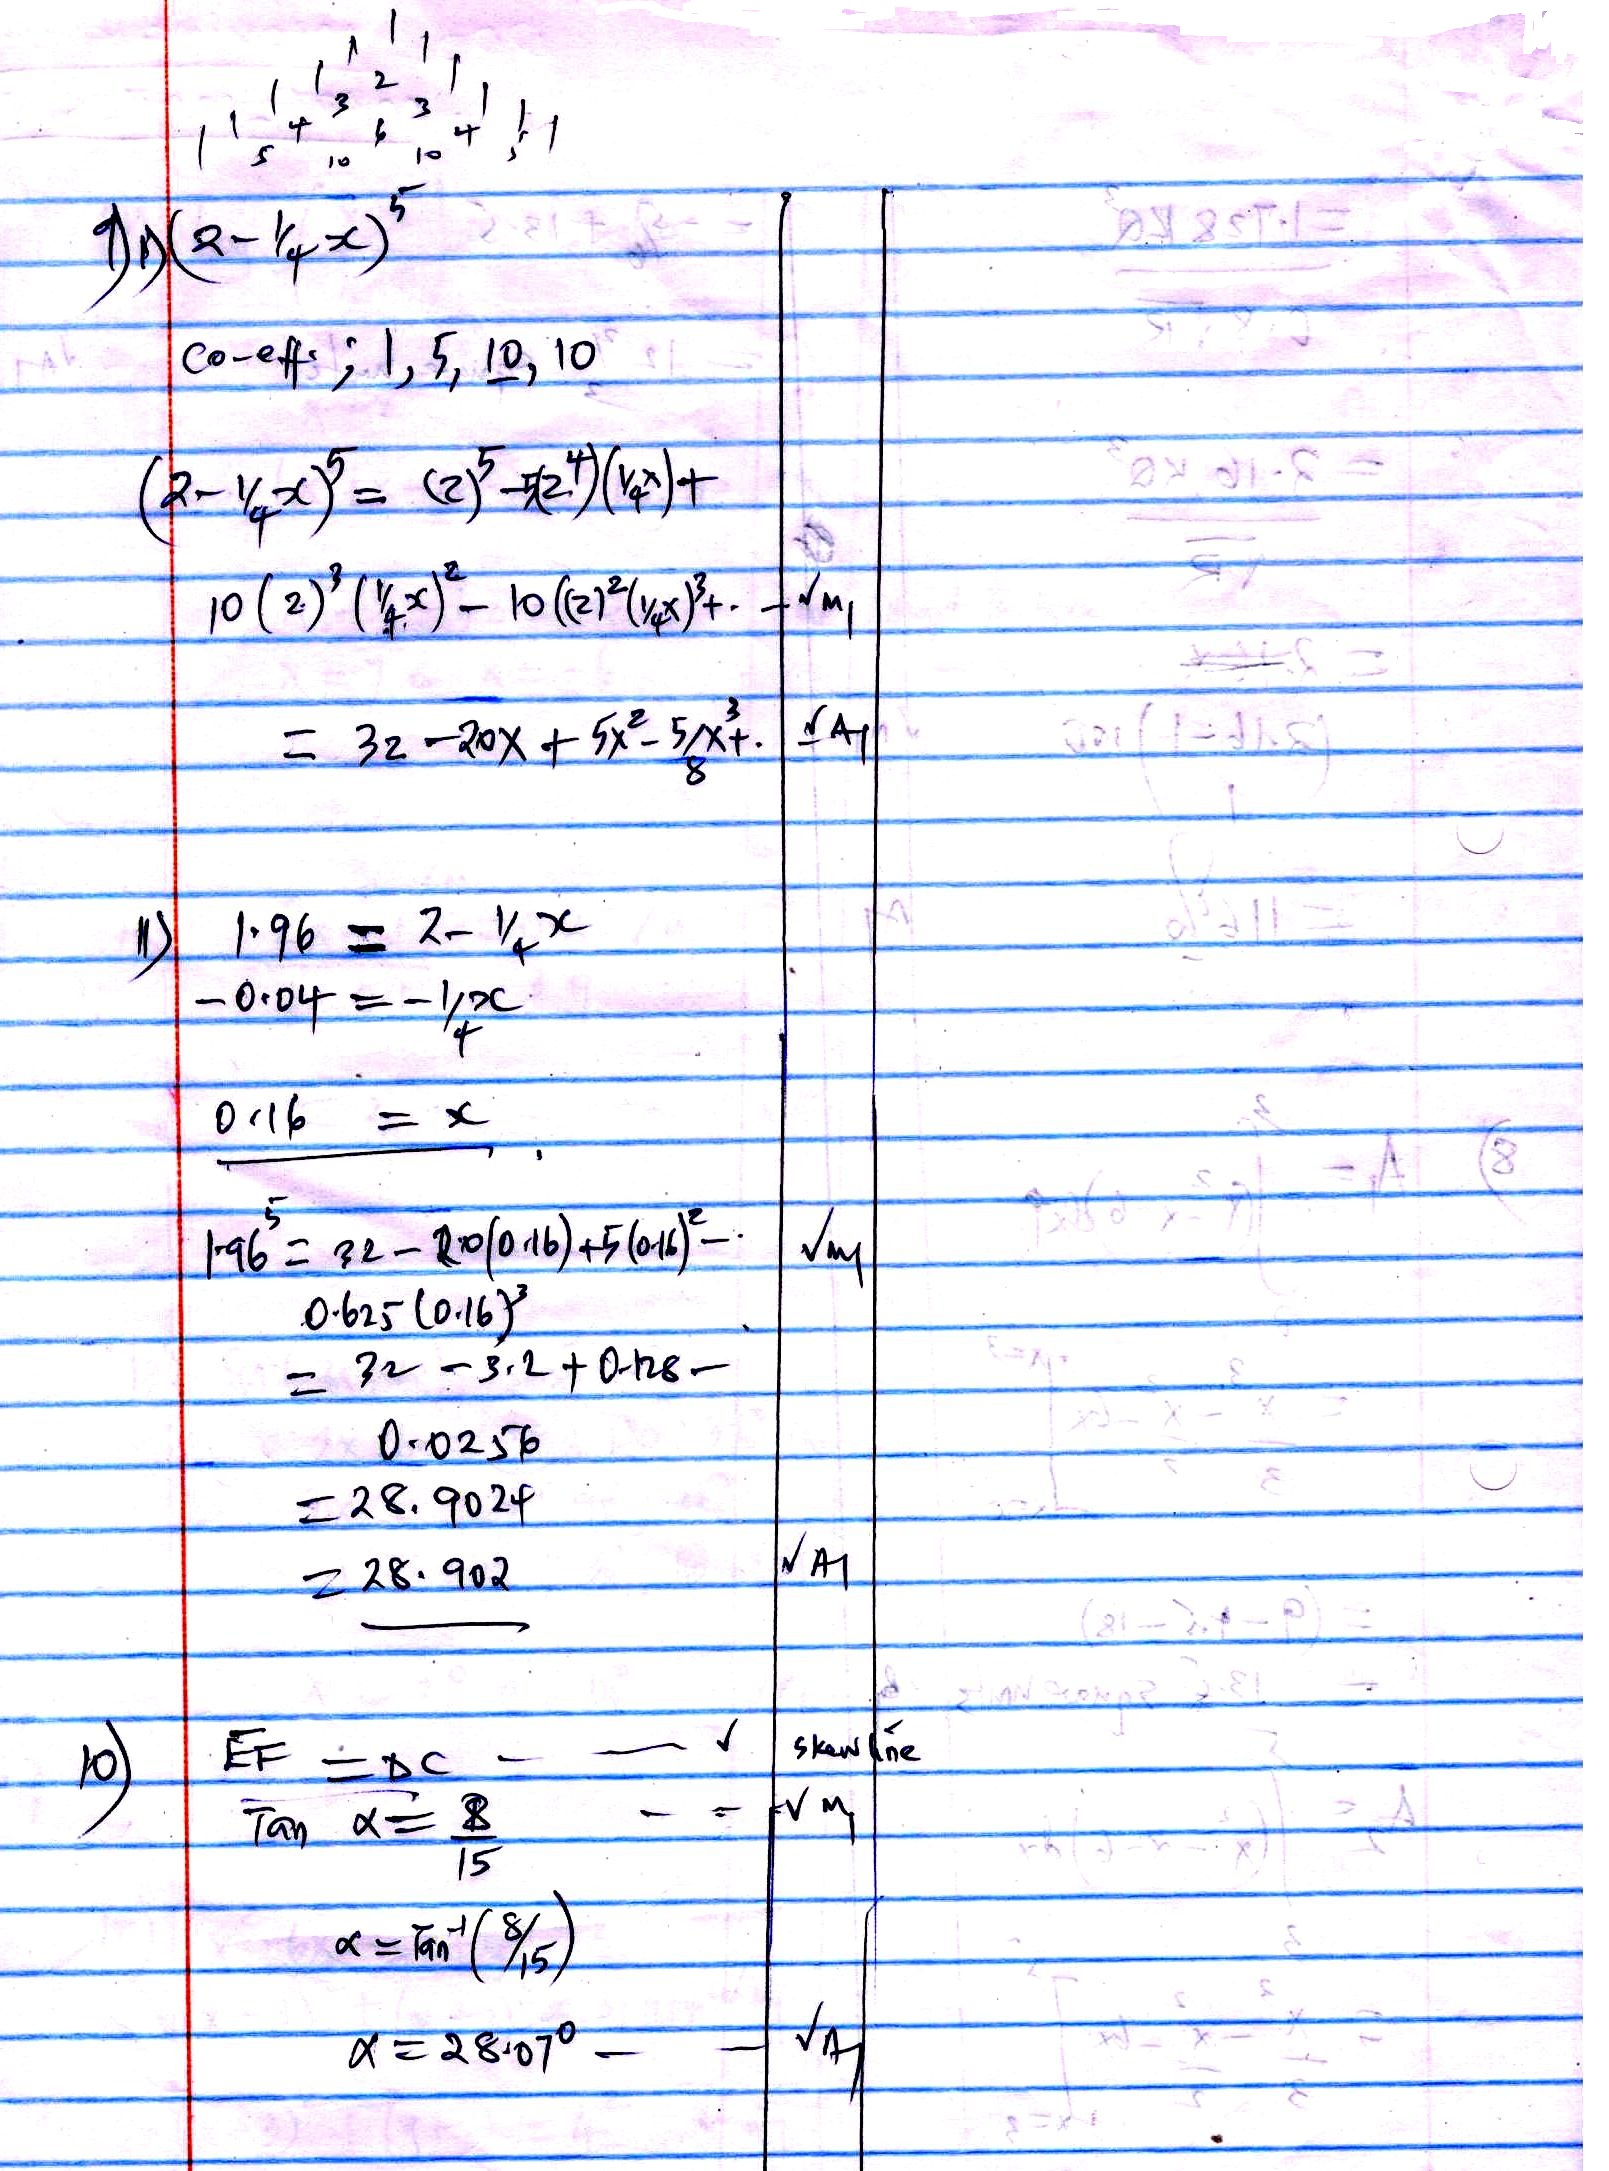 1
1 1
1 2 1
1 3 3 1
1 4 6 4 1
1 5 10 10 5 1
9) i) (2 - 1/4 x)^5
Co-eff ; 1, 5, 10, 10
(2 - 1/4 x)^5 = (2)^5 - 5(2^4)(1/4 x) +
10 (2)^3 (1/4 x)^2 - 10 ((2)^2 (1/4 x)^3 + . - √ M1
= 32 - 20x + 5x^2 - 5/8 x^3 + . √ A1
11) 1.96 = 2 - 1/4 x
- 0.04 = - 1/4 x
0.16 = x
1.96^5 = 32 - 20(0.16) + 5(0.16)^2 - √ M1
0.625 (0.16)^3
= 32 - 3.2 + 0.128 -
0.0256
= 28.9024
= 28.902 √ A1
10) EF = DC - — √ skew line
Tan α = 8/15 - - √ M1
α = Tan^-1 (8/15)
α = 28.07° — — √ A1